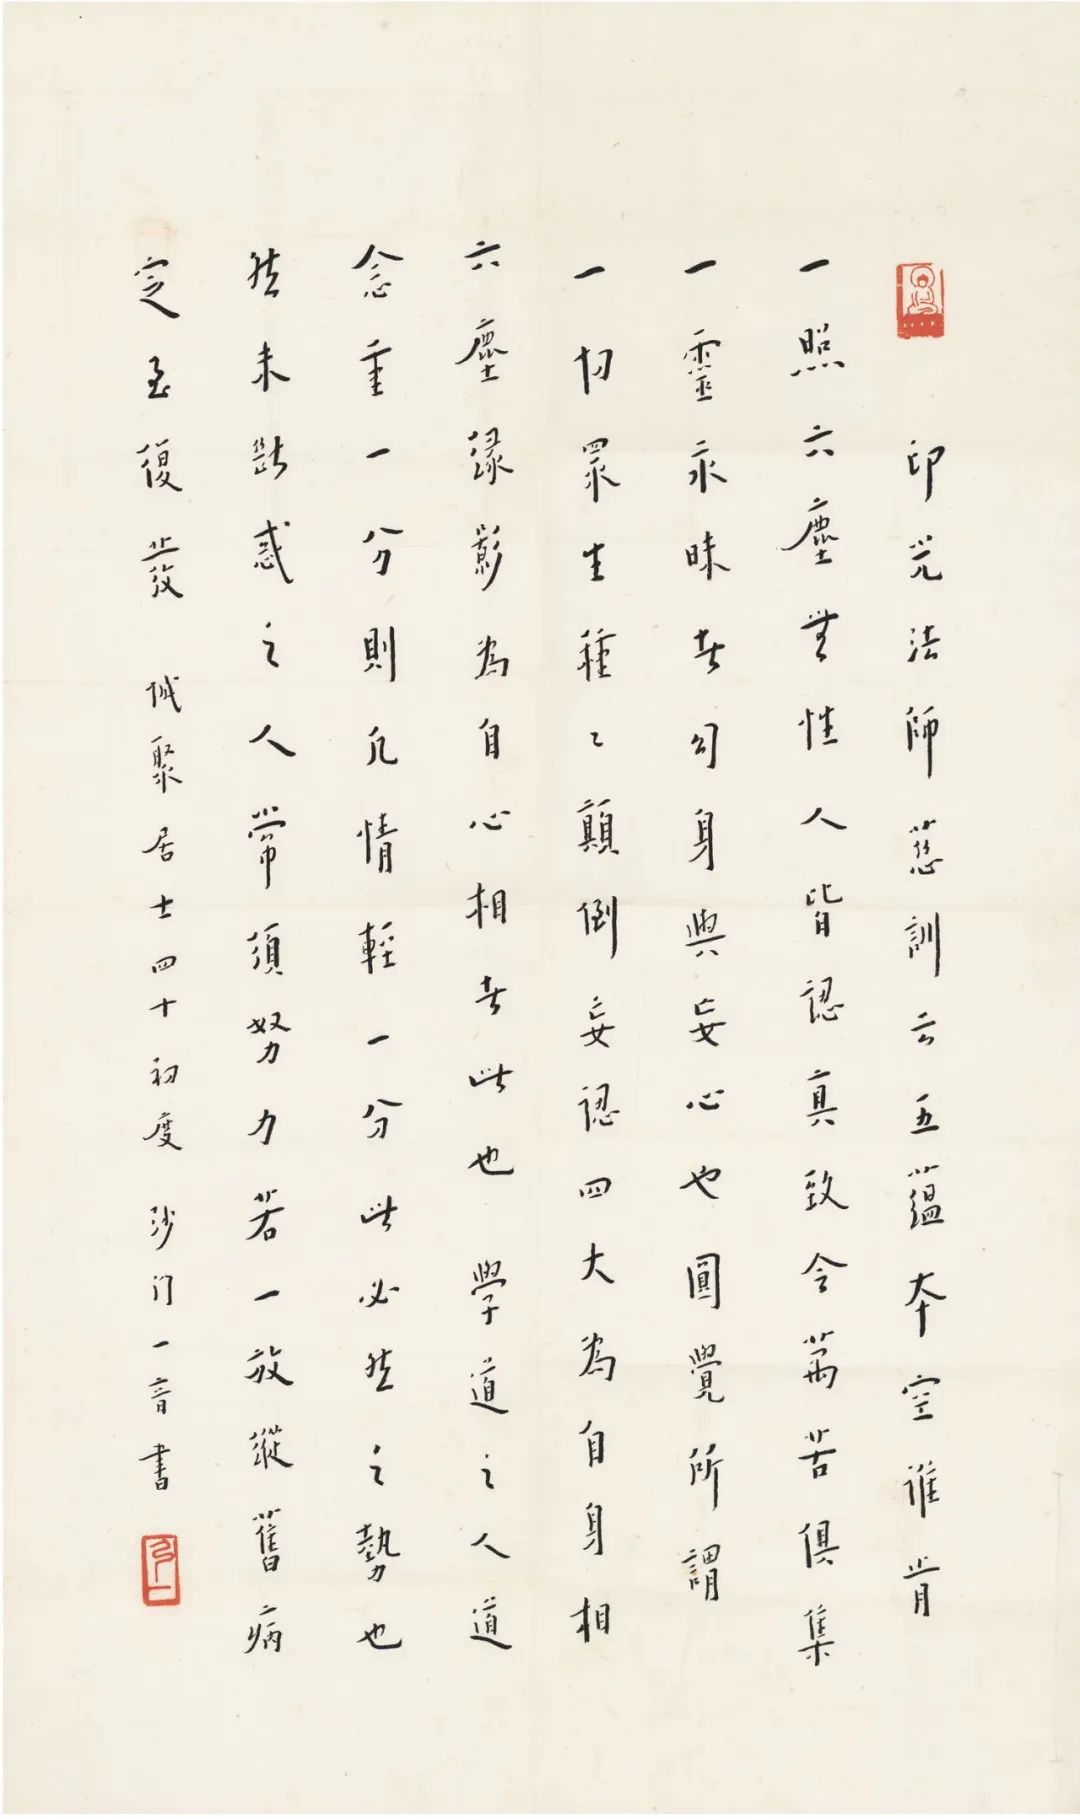 印光法師慈訓云五蘊本空誰肯
一照六塵無性人皆認真致令萬苦俱集
一靈永昧者幻身與妄心也圓覺所謂
一切眾生種〻顛倒妄認四大為自身相
六塵緣影為自心相者此也 學道之人道
念重一分則凡情輕一分此必然之勢也
然未斷惑之人常須努力若一放縱舊病
定至復發 誠聚居士四十初度 沙門一音書
弘一